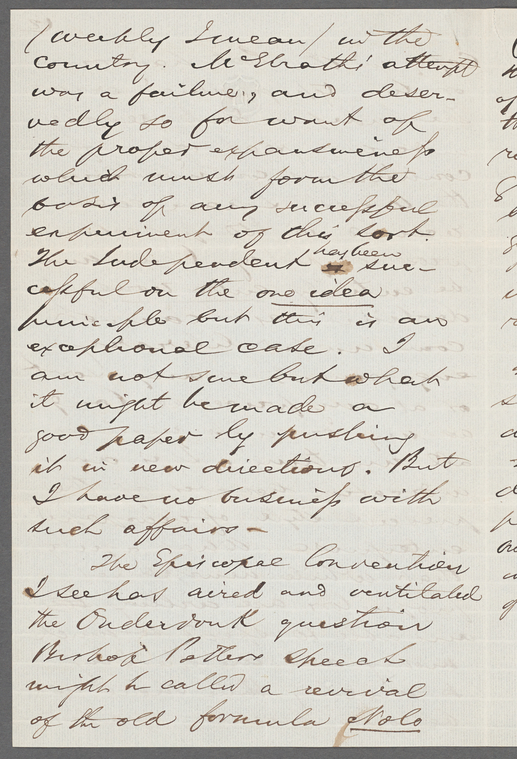 (weekly I mean) in the
country. McElrath's attempt
was a failure, and deser-
vedly so for want of
the proper expansiveness
which must form the
basis of any successful
experiment of this sort.
has been
The Independent suc-
cessful on the one idea
principle but this is an
exceptional case. I
am not sure but what
it might be made a
good paper by pushing
it in new directions. But
I have no business with
such affairs —
The Episcopal Convention
I see has aired and ventilated
the Onderdonk question
Bishop Potters speech
might be called a revival
of the old formula Nolo